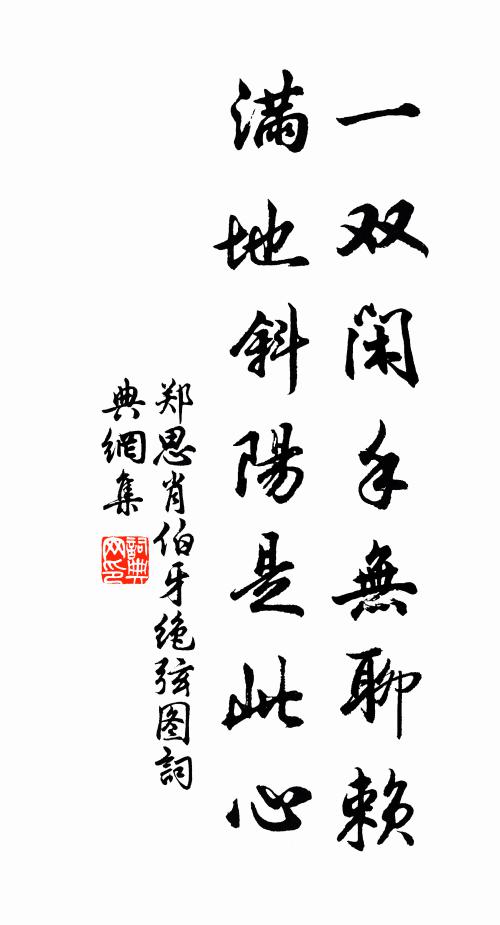 一双闲手無聊赖
满地斜陽是此心
郑思肖伯牙绝弦图詞
典網集
詞典
网印